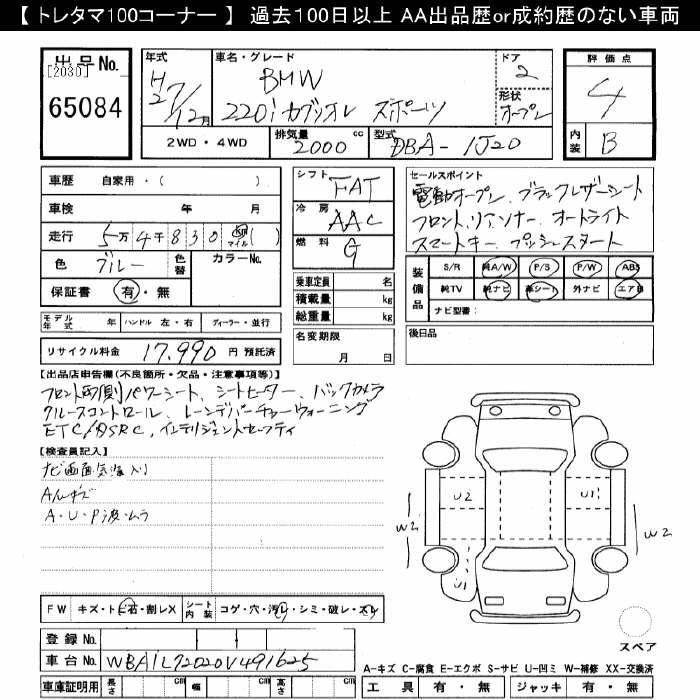 【 トレタマ100コーナー 】 過去100日以上 AA出品歴or成約歴のない車両
出品No.
[2030]
65084
年式
H27/12月
車名・グレード
BMW
220i カブリオレ スポーツ
ドア
2
形状
オープン
評価点
4
内装
B
2WD・4WD
排気量
2000 cc
型式
DBA-1J20
車歴 自家用・( )
車検 年 月
走行 5万4千830 Km マイル ( )
色 ブルー 色替 カラーNo.
保証書 有・無
シフト
FAT
冷房
AAC
燃料
G
乗車定員 名
積載量 kg
総重量 kg
名変期限
月 日
セールスポイント
電動オープン、ブラックレザーシート
フロント、リアソナー、オートライト
スマートキー、プッシュスタート
装備品
S/R 純A/W P/S P/W ABS
純TV 純ナビ 革シート 外ナビ エアB
ナビ型番:
後日品
モデル年式 年 ハンドル 左・右 ディーラー・並行
リサイクル料金 17,990 円 預託済
【出品店申告欄(不良箇所・欠品・注意事項等)】
フロント両側パワーシート、シートヒーター、バックカメラ
クルーズコントロール、レーンデパーチャーウォーニング
ETC/DSRC、インテリジェントセーフティ
【検査員記入】
ナビ画面気泡入り
Aんキズ
A・U・P波・ムラ
U2
U1
W2
W2
U1
FW キズ・トビ石・割レX シート内装 コゲ・穴・汚レ・シミ・破レ・スレ
登録 No.
車台 No. WBA1L72020V491625
車庫証明用 長さ cm 幅 cm 高さ cm
スペア
A-キズ C-腐食 E-エクボ S-サビ U-凹ミ W-補修 XX-交換済
工具 有・無 ジャッキ 有・無